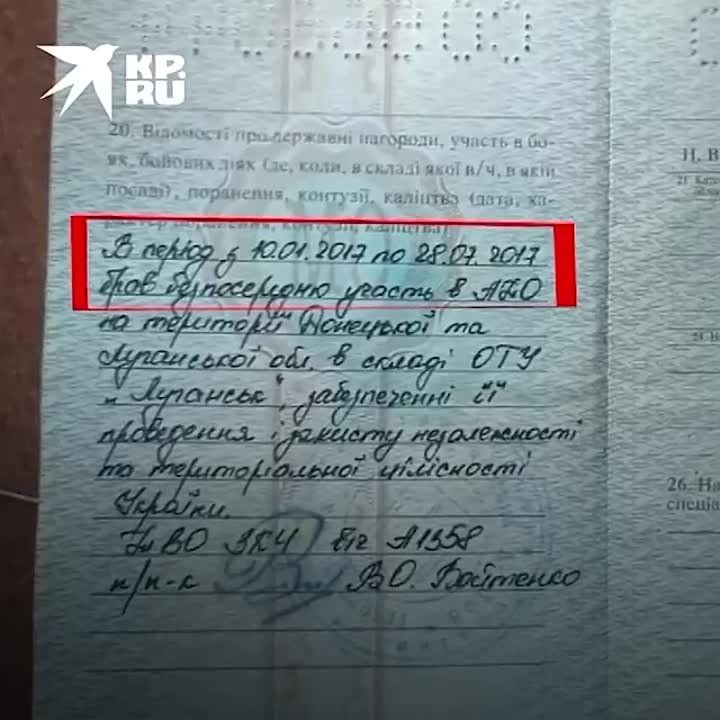 KP.
RU
20. Відомості про державні нагороди, участь в бо-
ях, бойових діях (де, коли, в складі якої в/ч, в якій
посаді), поранення, контузії, каліцтва (дата, ха-
рактер поранення, контузії, каліцтва)
В період з 10.01.2017 по 28.07.2017
брав безпосередню участь в АТО
на території Донецької та
Луганської обл. в складі ОТУ
"Луганськ", забезпеченні її
проведення і захисту незалежності
та територіальної цілісності
України.
ВО ЗКЧ в/ч А1358
п/п-к В.О. Войтенко
II. В
26. На
спеціа